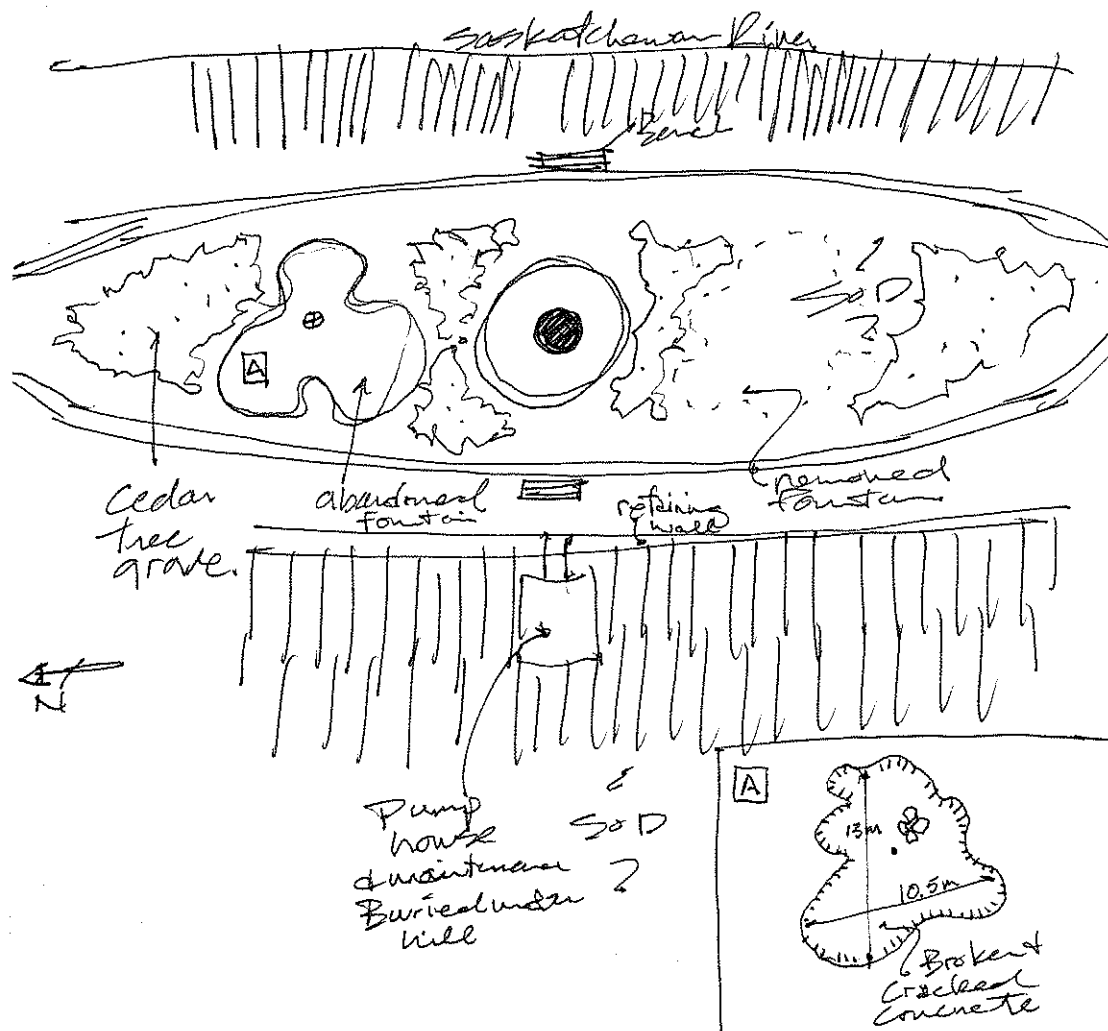 Saskatchewan River
Bench
SOD
A
cedar
tree
grove.
abandoned
fountain
retaining
wall
removed
fountain
N
Pump
house
& maintenance
Buried under
hill
SOD
A
13m
10.5m
Broken &
Cracked
concrete